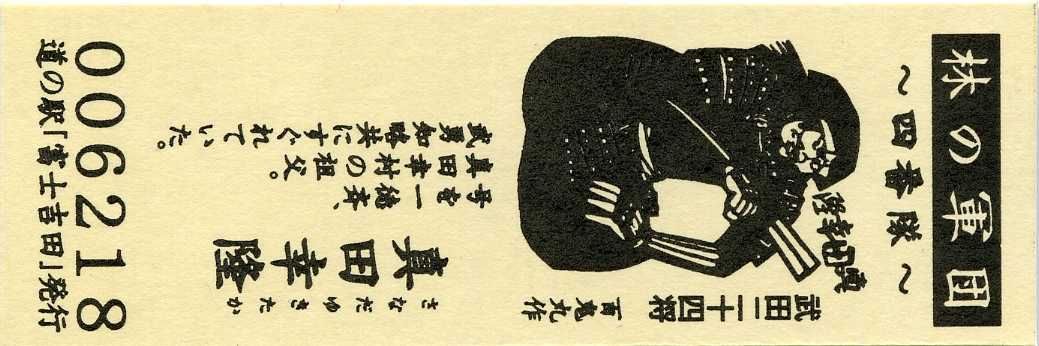 林の軍団
～四番隊～
武田二十四将 百鬼丸作
真田幸隆
さなだゆきたか
真田幸隆
号を一徳斎、
真田幸村の祖父。
武勇知略共にすぐれていた。
006218
道の駅「富士吉田」発行